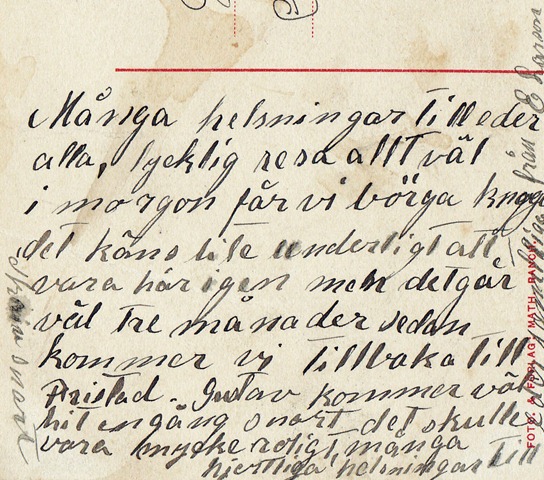 Många helsningar till eder
alla, lycklig resa allt väl
i morgon får vi börga
det käns lite underligt att
vara här igen men det går
väl tre månader sedan
kommer vi tillbaka till
Gustav kommer väl
hit engång snart det skulle
vara mycke roligt, många
hjertliga helsningar till
skriv snart
från E Larson
FOTO. & FÖRLAG, MATH. RAMÓN